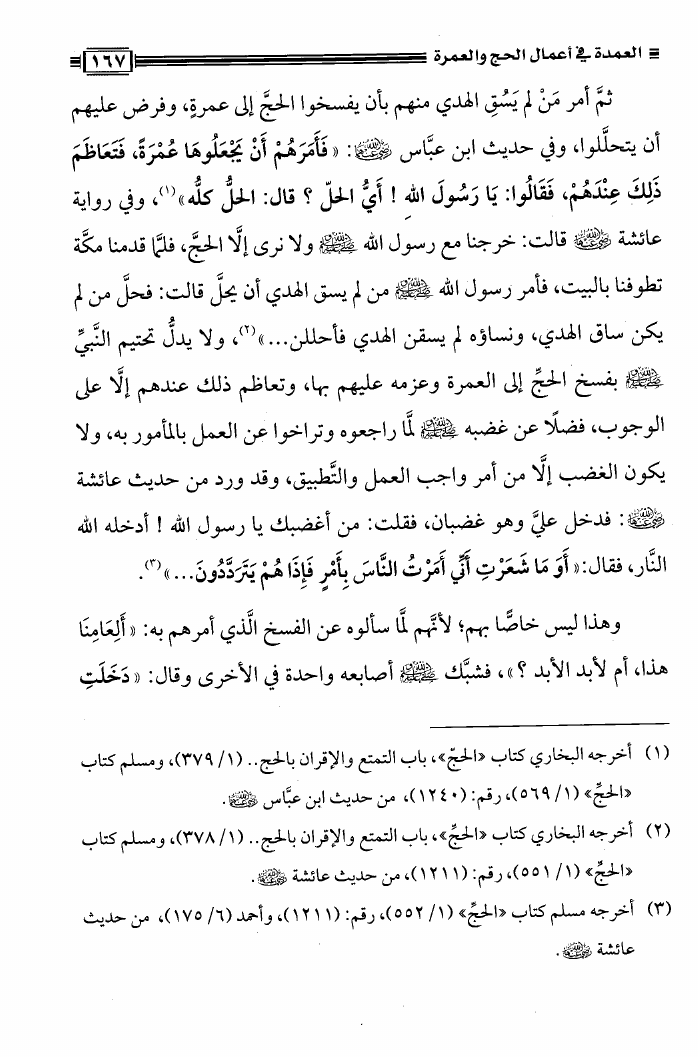 العمدة في أعمال الحج والعمرة
١٦٧
ثمَّ أمر مَنْ لم يَسُقِ الهدي منهم بأن يفسخوا الحجَّ إلى عمرةٍ، وفرض عليهم
أن يتحلَّلوا، وفي حديث ابن عبَّاس رضي الله عنهما: «فَأَمَرَهُمْ أَنْ يَجْعَلُوهَا عُمْرَةً، فَتَعَاظَمَ
ذَلِكَ عِنْدَهُمْ، فَقَالُوا: يَا رَسُولَ اللهِ ! أَيُّ الحلّ ؟ قال: الحلُّ كلُّه»(١)، وفي رواية
عائشة رضي الله عنها قالت: خرجنا مع رسول الله ﷺ ولا نرى إلَّا الحجَّ، فلمَّا قدمنا مكَّة
تطوفنا بالبيت، فأمر رسول الله ﷺ من لم يسق الهدي أن يحلَّ قالت: فحلَّ من لم
يكن ساق الهدي، ونساؤه لم يسقن الهدي فأحللن...»(٢)، ولا يدلُّ تحتيم النَّبيِّ
ﷺ بفسخ الحجِّ إلى العمرة وعزمه عليهم بها، وتعاظم ذلك عندهم إلَّا على
الوجوب، فضلًا عن غضبه ﷺ لمَّا راجعوه وتراخوا عن العمل بالمأمور به، ولا
يكون الغضب إلَّا من أمر واجب العمل والتَّطبيق، وقد ورد من حديث عائشة
رضي الله عنها: فدخل عليَّ وهو غضبان، فقلت: من أغضبك يا رسول الله ! أدخله الله
النَّار، فقال: «أَوَ مَا شَعَرْتِ أَنِّي أَمَرْتُ النَّاسَ بِأَمْرٍ فَإِذَا هُمْ يَتَرَدَّدُونَ...»(٣).
وهذا ليس خاصًّا بهم؛ لأنَّهم لمَّا سألوه عن الفسخ الَّذي أمرهم به: «أَلِعَامِنَا
هذا، أم لأبد الأبد ؟»، فشبَّك ﷺ أصابعه واحدة في الأخرى وقال: «دَخَلَتِ
(١) أخرجه البخاري كتاب «الحجّ»، باب التمتع والإقران بالحج.. (١/ ٣٧٩)، ومسلم كتاب
«الحجِّ» (١/ ٥٦٩)، رقم: (١٢٤٠)، من حديث ابن عبَّاس رضي الله عنهما.
(٢) أخرجه البخاري كتاب «الحجِّ»، باب التمتع والإقران بالحج.. (١/ ٣٧٨)، ومسلم كتاب
«الحجِّ» (١/ ٥٥١)، رقم: (١٢١١)، من حديث عائشة رضي الله عنها.
(٣) أخرجه مسلم كتاب «الحجِّ» (١/ ٥٥٢)، رقم: (١٢١١)، وأحمد (٦/ ١٧٥)، من حديث
عائشة رضي الله عنها.